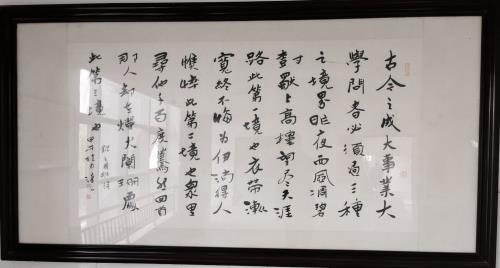 古今之成大事業大
學問者必須過三種
之境界昨夜西風凋碧
樹獨上高樓望盡天涯
路此第一境也衣帶漸
寬終不悔為伊消得人
憔悴此第二境也眾里
尋他千百度驀然回首
那人卻在燈火闌珊處
此第三境也